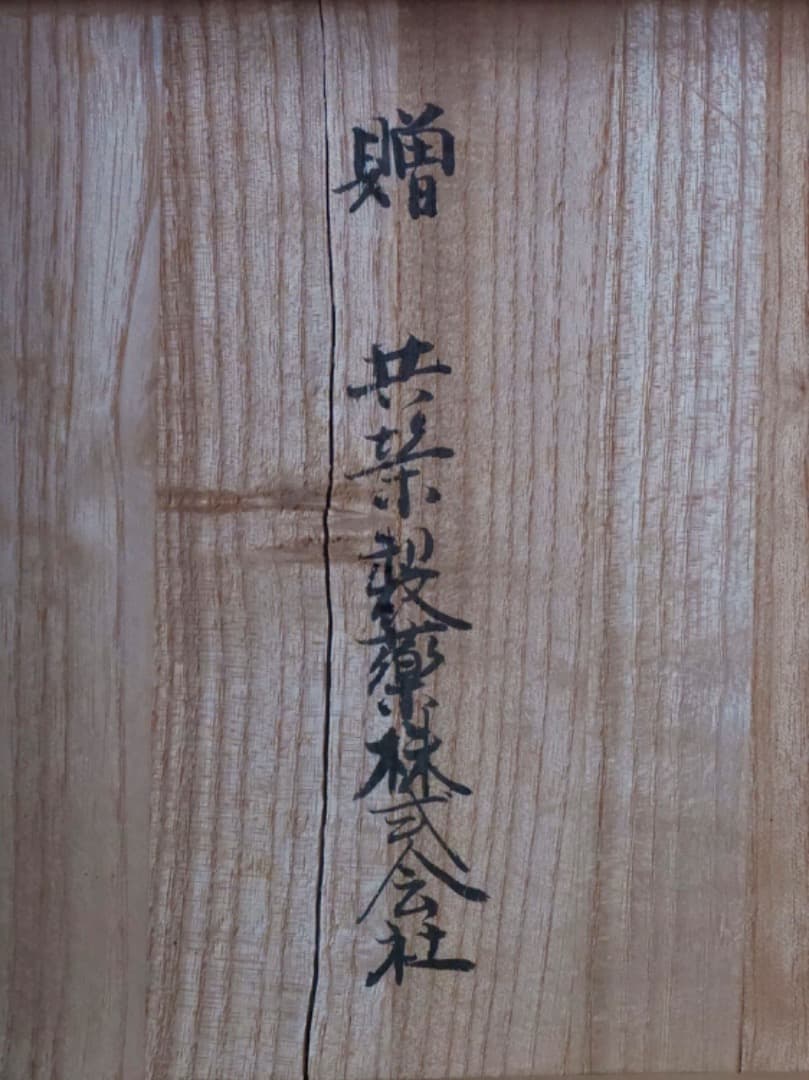 贈 共栄製薬株式会社